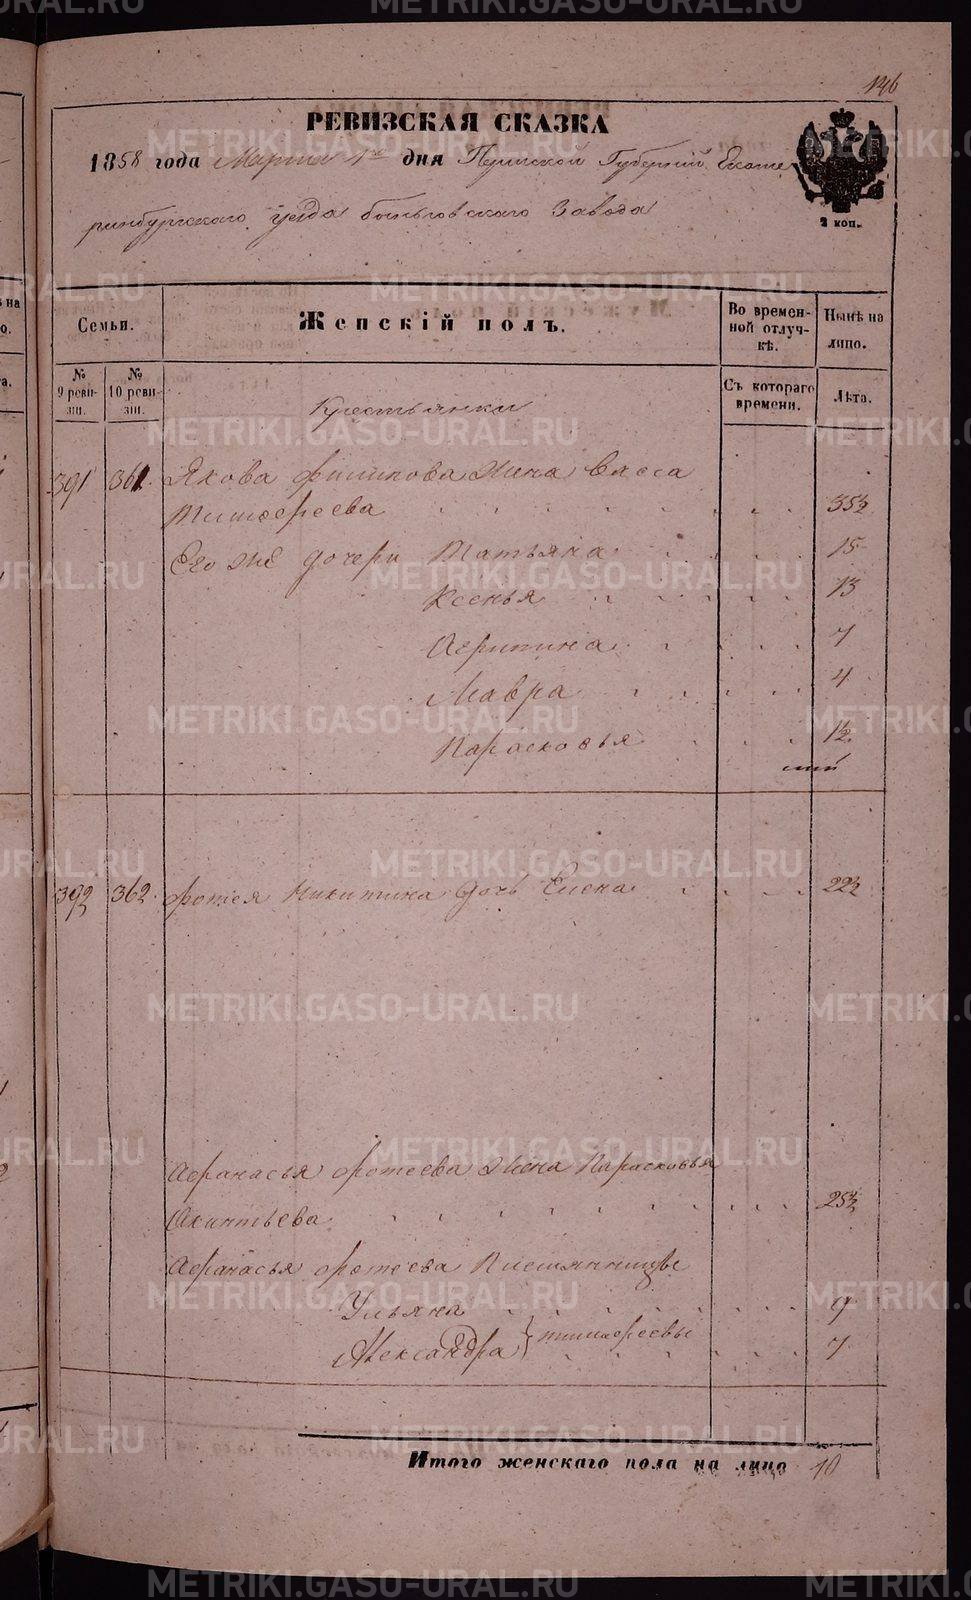 146
РЕВИЗСКАЯ СКАЗКА
1858 года Марта 1го дня Пермской Губерніи Екате
ринбургскаго уезда быньговскаго Завода
2 коп.
Семьи.
Женскій полъ.
Во времен-
ной отлуч-
кѣ.
Нынѣ на
лицо.
№
9 реви-
зіи.
№
10 реви-
зіи.
Съ котораго
времени.
Лѣта.
Крестьянки
391 361. Якова Филипова Жена Васса
Тимофеева 35½
Его же дочери Татьяна 15
Ксенья 13
Агрипина 7
Мавра 4
Парасковья 1½
392 362. Фотея Никитина дочь Елена 22½
Афанасья Фотеева Жена Парасковья
Акинтьева 25½
Афанасья Фотеева Племянницы
Ульяна 9
Александра } тимофеевы 7
Итого женскаго пола на лицо 10
METRIKI.GASO-URAL.RU